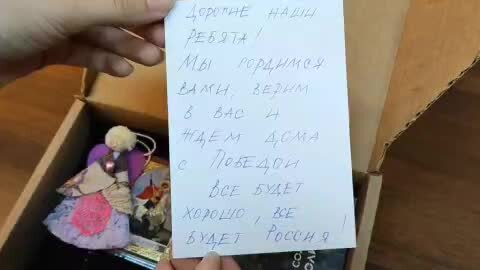 ДОРОГИЕ НАШИ
РЕБЯТА!
МЫ ГОРДИМСЯ
ВАМИ, ВЕРИМ
В ВАС И
ЖДЕМ ДОМА
С ПОБЕДОЙ
ВСЕ БУДЕТ
ХОРОШО, ВСЕ
БУДЕТ РОССИЯ!